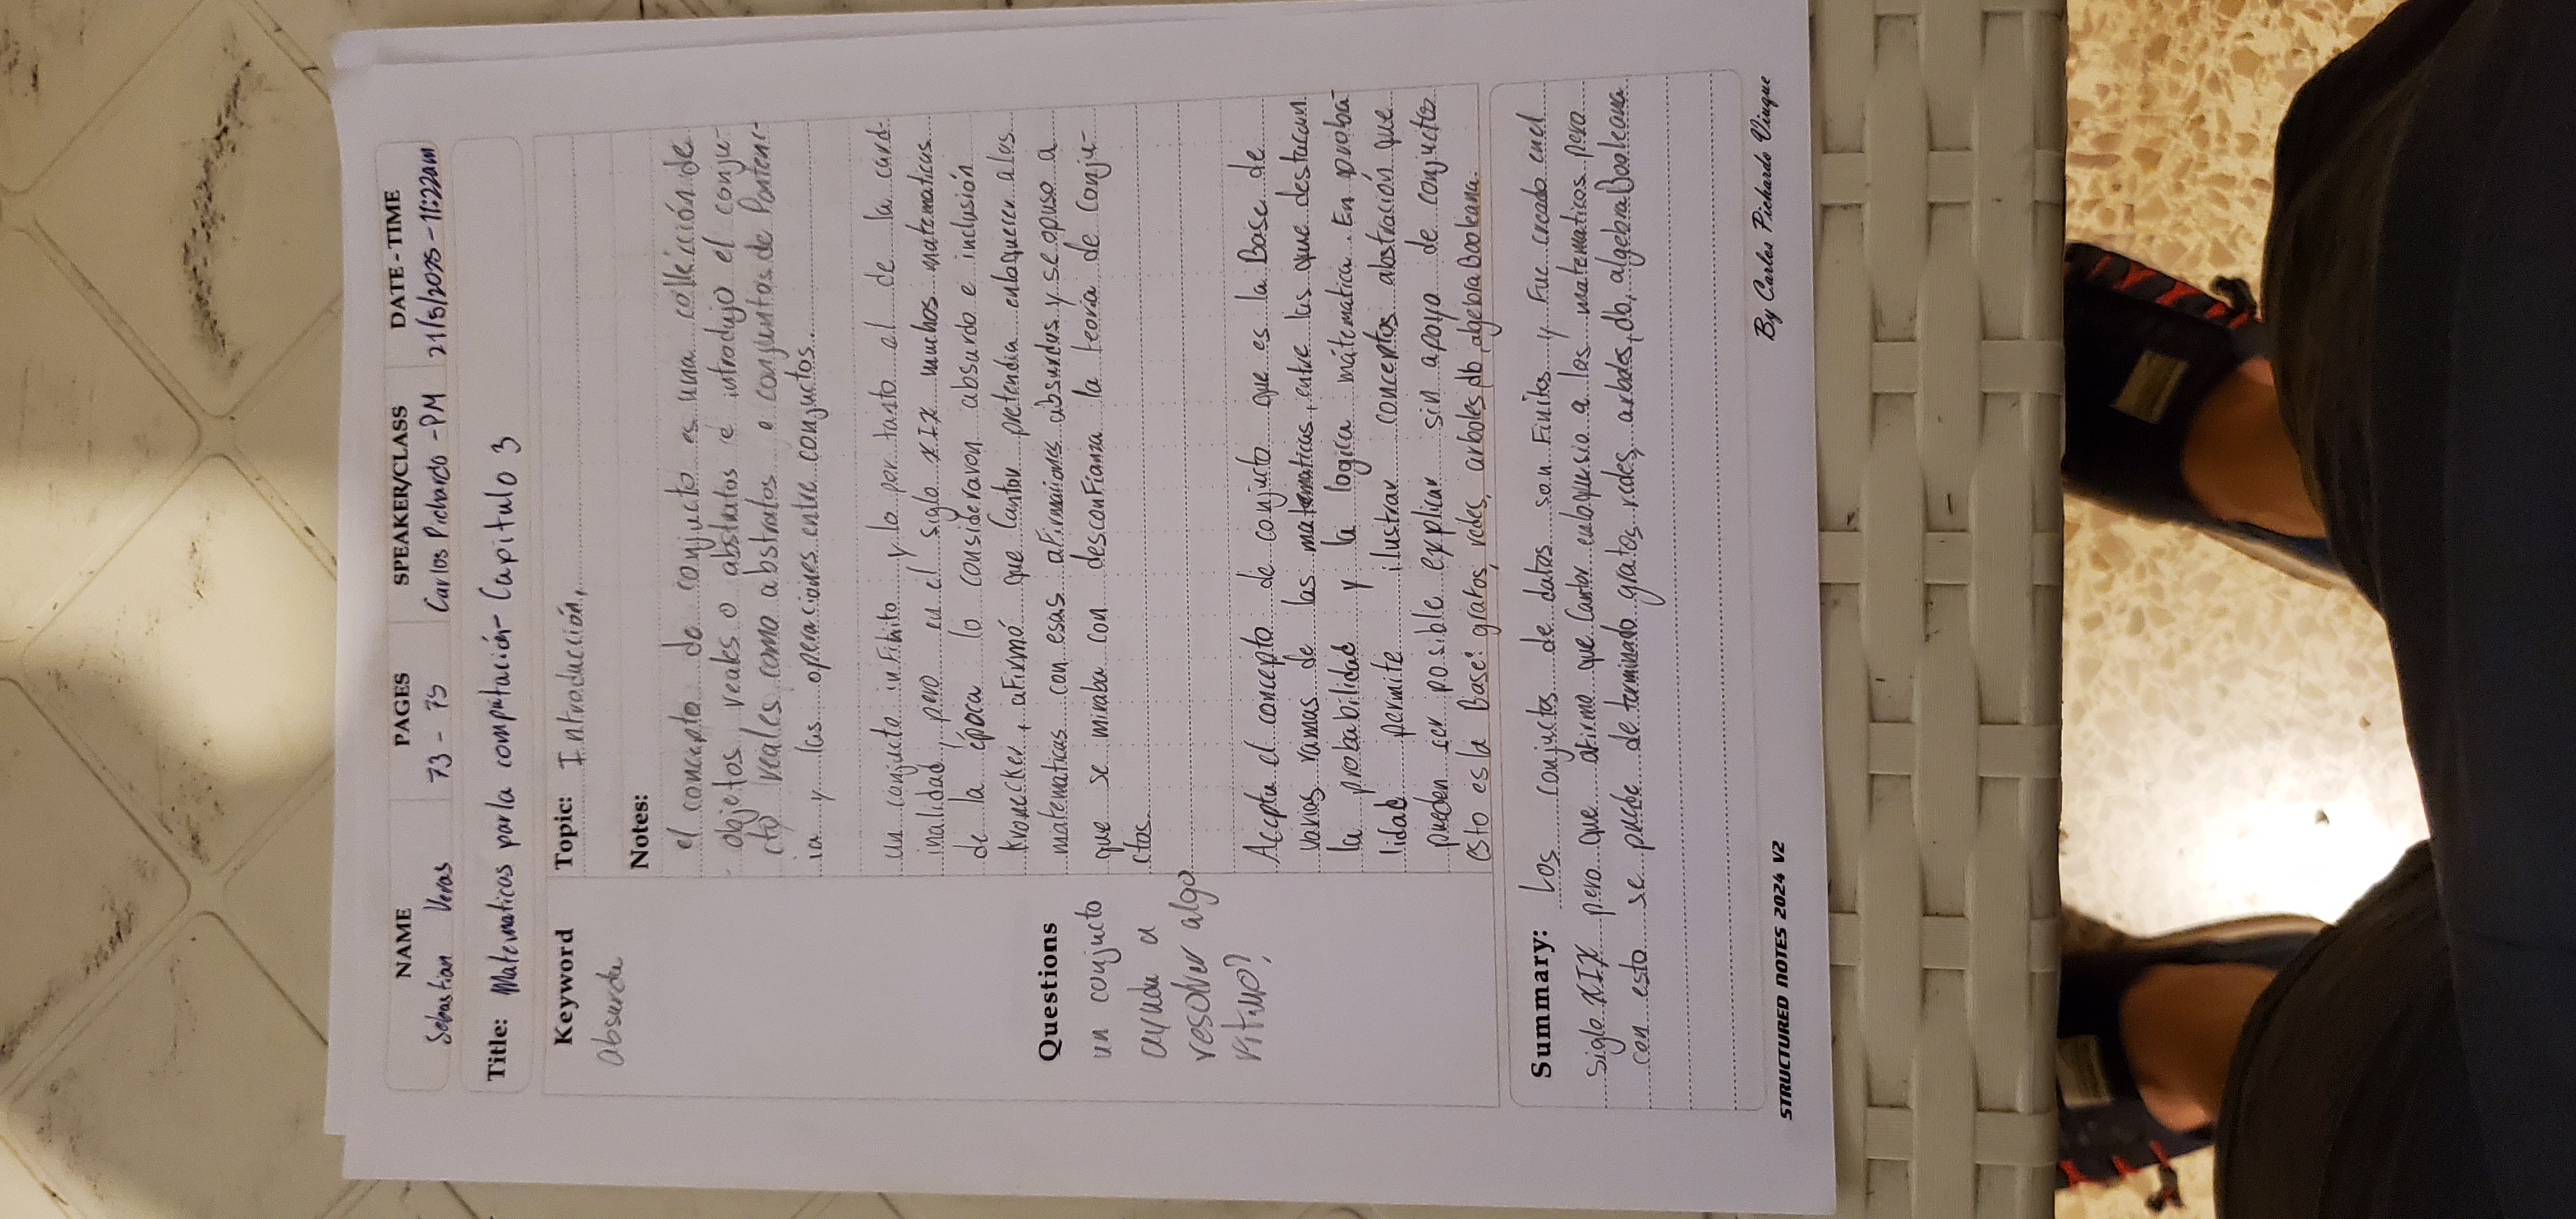 NAME PAGES SPEAKER/CLASS DATE-TIME
Sebastian Veras 73 - 75 Carlos Pichardo -PM 21/5/2025 - 11:22am
Title: Matematicas parla computación- Capitulo 3
Keyword
Absurda
Topic: Introducción,
Notes:
el concepto de conjucto es una collección de
objetos, reales o abstratos e introdujo el conju-
cto reales como abstratos e conjuntos de Pontenc-
ia y las operaciones entre conjuctos.
un conjucto infinito y lo por tanto el de la card-
inalidad, pero en el siglo XIX muchos matematicas
de la época lo consideravon absurdo e inclusión
Kronecker, afirmó que Cantor pretendia enloquecer a los
matematicas con esas afirmaciones absurdas y se opuso a
que se miraba con desconfianza la teoria de conju-
ctos.
Questions
un conjucto
ayuda a
resolver algo
ritmo?
Accpta el concepto de conjucto que es la Base de
varias ramas de las matematicas, entre las que destacan
la probabilidad y la logica mátematica. En proba-
lidad permite ilustrar conceptos abstración que
pueden ser posible explicar sin apoyo de conjuctos
esto es la Base: grafos, redes, arboles, db, algebra Booleana.
Summary: Los conjuctos de datos son Finitos y Fue creado en el
siglo XIX pero que afirmo que Cantor enloquesio a los matematicos pero
con esto se puede determinado grafos, redes, arboles, db, algebra Booleana
STRUCTURED NOTES 2024 V2
By Carlos Pichardo Viuque